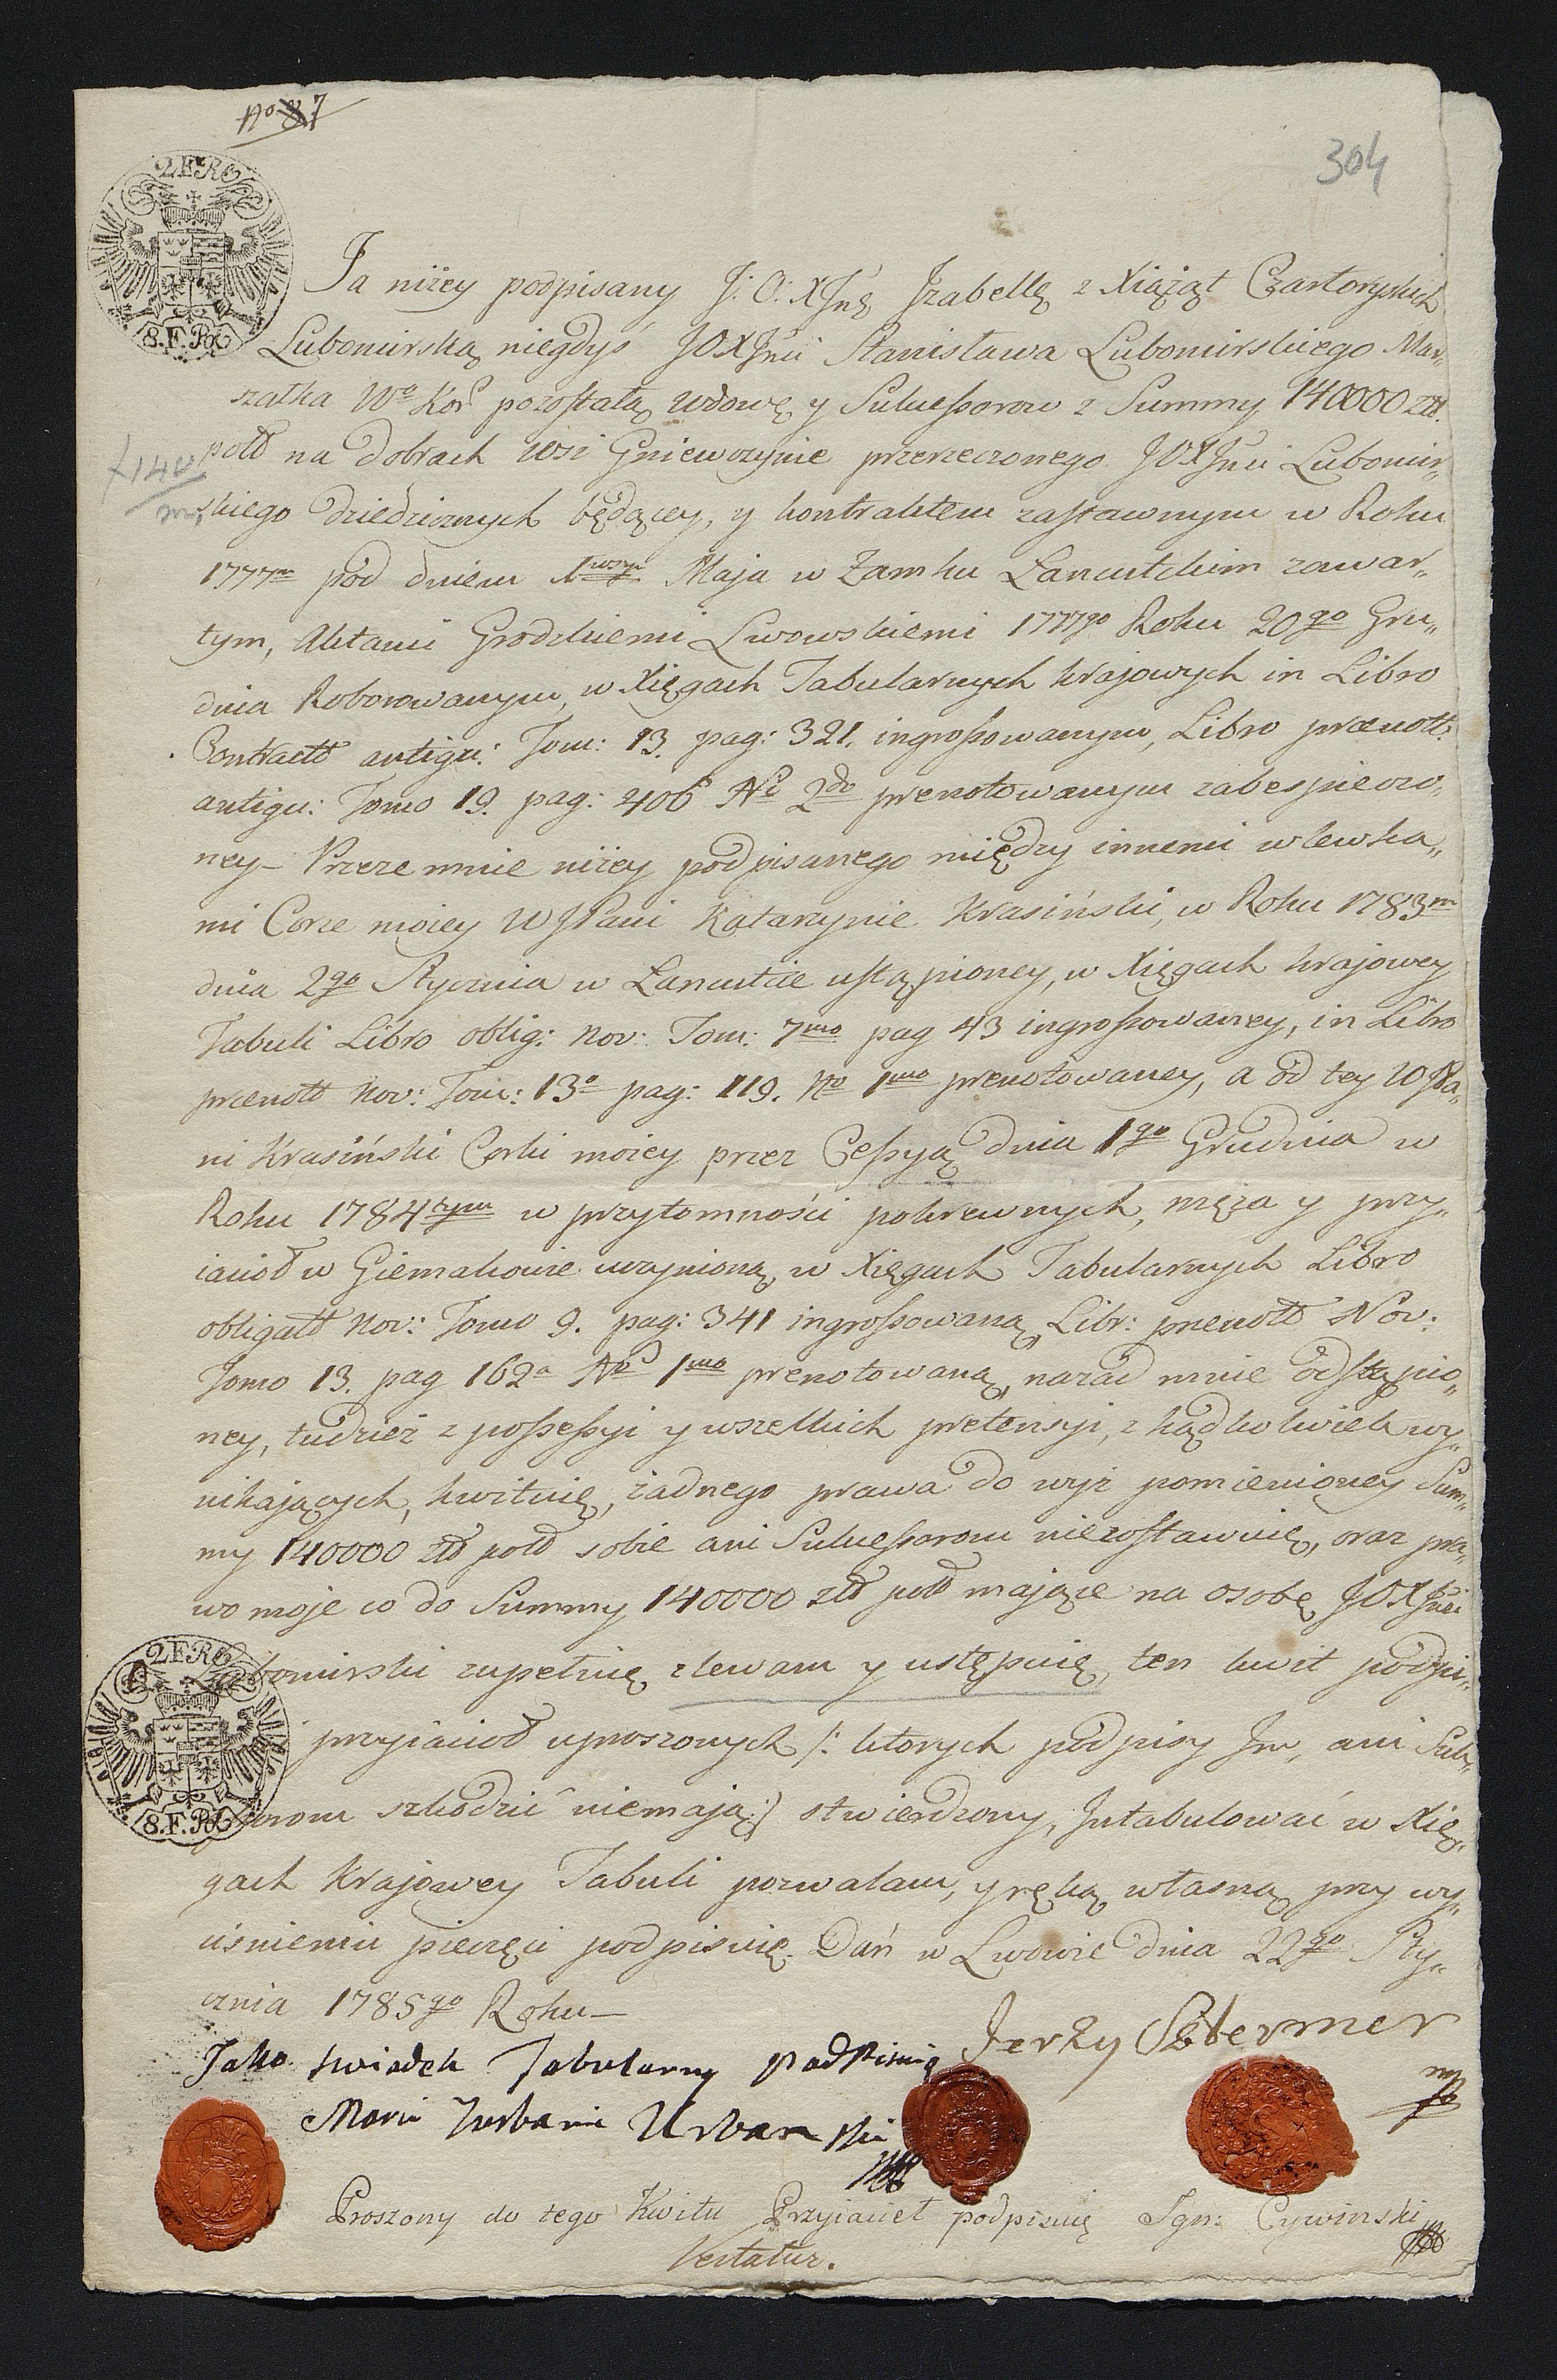 No 87
304
2 FR
8. F. R
Ja niżey podpisany J: O: XJnę Jzabellę z Xiążąt Czartoryskich
Lubomirską niegdyś JOXJnci Stanisława Lubomirskiego Mar„
szałka Wo Kor. pozostałą wdowę y Sukceſsorow z Summy 140000 złł.
poll na dobrach wsi Gniewczynie przerzeczonego JOXJnci Lubomir„
140
m
skiego dziedzicznych będącey, y kontraktem zastawnym w Roku
1777m pod dniem 1wszym Maja w Zamku Lancutckim zawar„
tym, Aktami Grodzkiemi Lwowskiemi 1777go Roku 20go Gru„
dnia Roborowanym, w Xięgach Tabularnych krajowych in Libro
Contractt antiqu: Tom: 13. pag: 321. ingroſsowanym, Libro prænott:
antiqu: Tomo 19. pag: 406 No 2do prenotowanym zabespieczo„
ney – Przeze mnie niżey podpisanego między innemi wlewka„
mi Corce moiey WJPani Katarzynie Krasiński, w Roku 1783m
dnia 2go Stycznia w Lancutcie ustąpioney, w Xięgach krajowey
Tabuli Libro oblig: nov: Tom: 7mo pag 43 ingroſsowaney, in Libro
prænott nov: Tom: 13o pag: 119. No 1mo prenotowaney, a od tey WJPa„
ni Krasiński Corki moiey przez Ceſsyą dnia 1go Grudnia w
Roku 1784rym w przytomności pokrewnych, męża y przy„
iacioł w Giemakowie uczynioną, w Xięgach Tabularnych Libro
obligatt nov: Tomo 9. pag: 341 ingroſsowaną, Libr: prenott Nov:
Tomo 13. pag 162a No 1mo prenotowaną, nazad mnie odstąpio„
ney, tudzież z poſseſsyi y wszelkich pretensyi, z kądkolwiek wy„
nikających, kwituię, żadnego prawa do wyż pomienioney Sum„
my 140000 złł poll sobie ani Sukceſsorom niezostawuię, oraz pra„
wo moje co do Summy 140000 złł poll mające na osobę JOXJnci
Lubomirski zupełnie zlewam y ustępuię, ten kwit podpi„
przyiacioł uproszonych /: ktorych podpisy Jm, ani Suk„
ceſsorom szkodzić niemają :/ stwierdzony, Jntabulować w Xię„
2 FR
8. F. R
gach Krajowey Tabuli pozwalam, y ręką własną przy wy„
ciśnieniu pieczęci podpisuię. Dań w Lwowie dnia 22go Sty„
cznia 1785go Roku –
Jerzy Sztermer
mp
Jako swiadek Tabularny podpisuię
Urbanski
mp
Proszony do tego Kwitu Przyiaciel podpisuię Ign: Cywinski
mp
Vertatur.